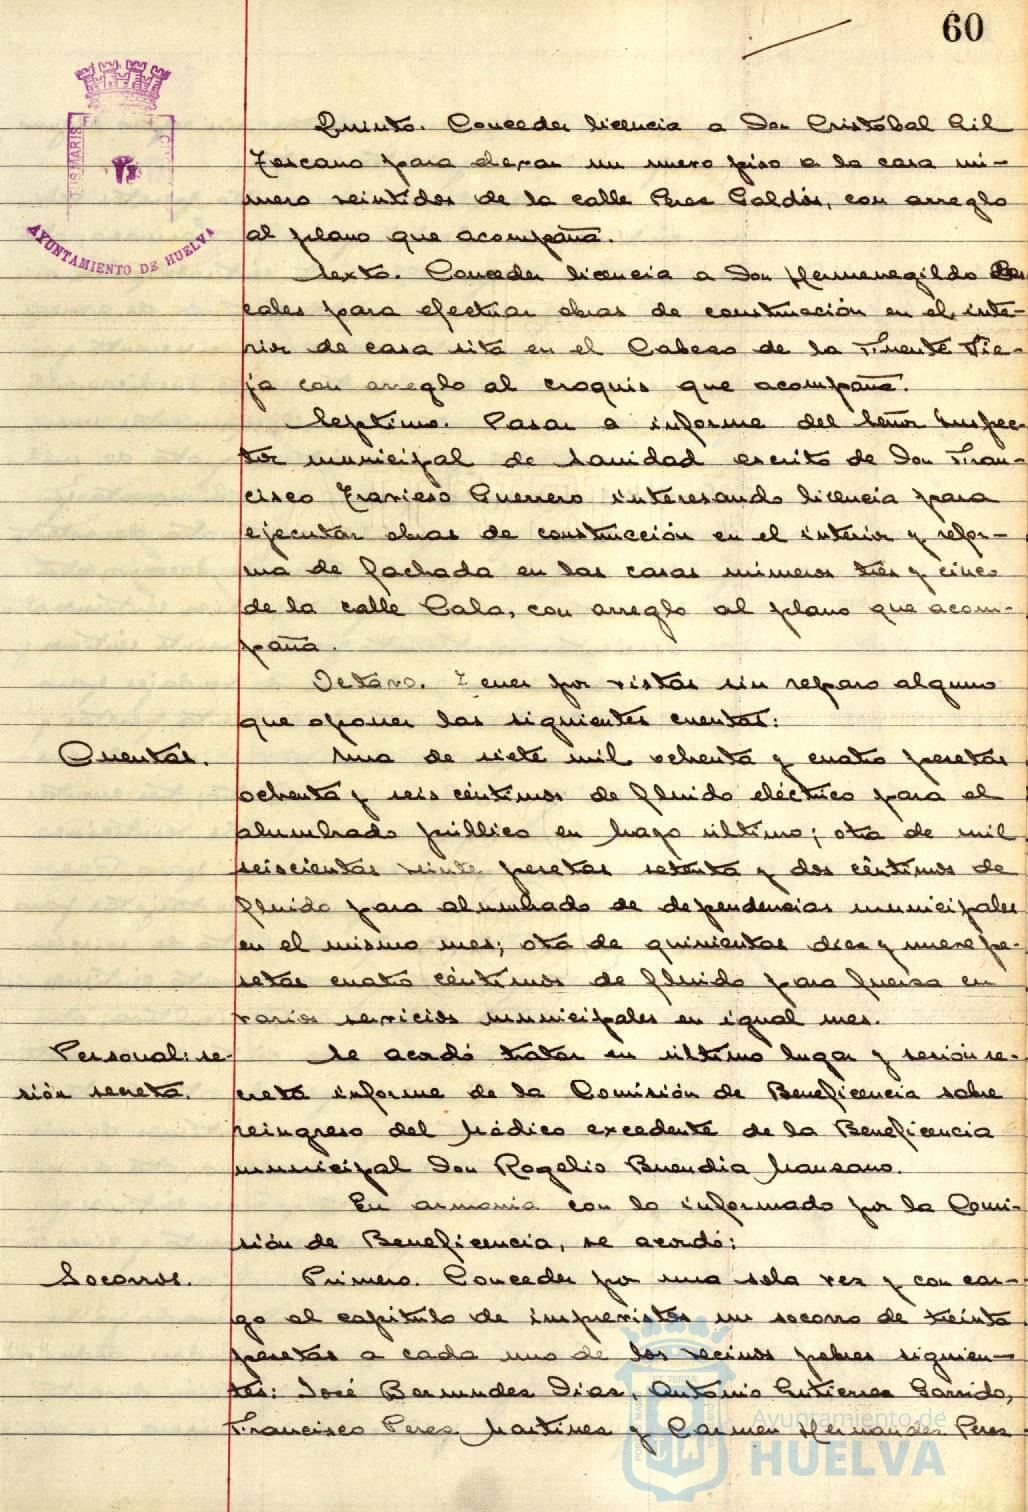 60
AYUNTAMIENTO DE HUELVA
Quinto. Conceder licencia a Don Cristóbal Gil
Toscano para elevar un nuevo piso a la casa nú-
mero veintidos de la calle Perez Galdós, con arreglo
al plano que acompaña.
Sexto. Conceder licencia a Don Hermenegildo
cales para efectuar obras de construcción en el inte-
rior de casa sita en el Cabezo de la Fuente Vie-
ja con arreglo al croquis que acompaña.
Septimo. Pasar a informe del Señor Inspec-
tor municipal de Sanidad escrito de Don Fran-
cisco Travieso Guerrero interesando licencia para
ejecutar obras de construcción en el interior y refor-
ma de fachada en las casas números tres y cinco
de la calle Cala, con arreglo al plano que acom-
paña.
Octavo. Tener por vistas sin reparo alguno
que oponer las siguientes cuentas:
Cuentas.
Una de siete mil ochenta y cuatro pesetas
ochenta y seis céntimos de fluido eléctrico para el
alumbrado público en Mayo último; otra de mil
seiscientas veinte pesetas setenta y dos céntimos de
fluido para alumbrado de dependencias municipales
en el mismo mes; otra de quinientas diez y nueve pe-
setas cuatro céntimos de fluido para fuerza en
varios servicios municipales en igual mes.
Personal: se-
sión secreta.
Se acordó tratar en último lugar y sesión se-
creta informe de la Comisión de Beneficencia sobre
reingreso del Médico excedente de la Beneficencia
municipal Don Rogelio Buendia Manzano.
En armonia con lo informado por la Comi-
sión de Beneficencia, se acordó:
Socorros.
Primero. Conceder por una sola vez y con car-
go al capitulo de imprevistos un socorro de treinta
pesetas a cada uno de los vecinos pobres siguien-
tes: José Bermudez Diaz, Antonio Gutierrez Garrido,
Francisco Perez Martinez y Carmen Hernandez Perez
Ayuntamiento de
HUELVA